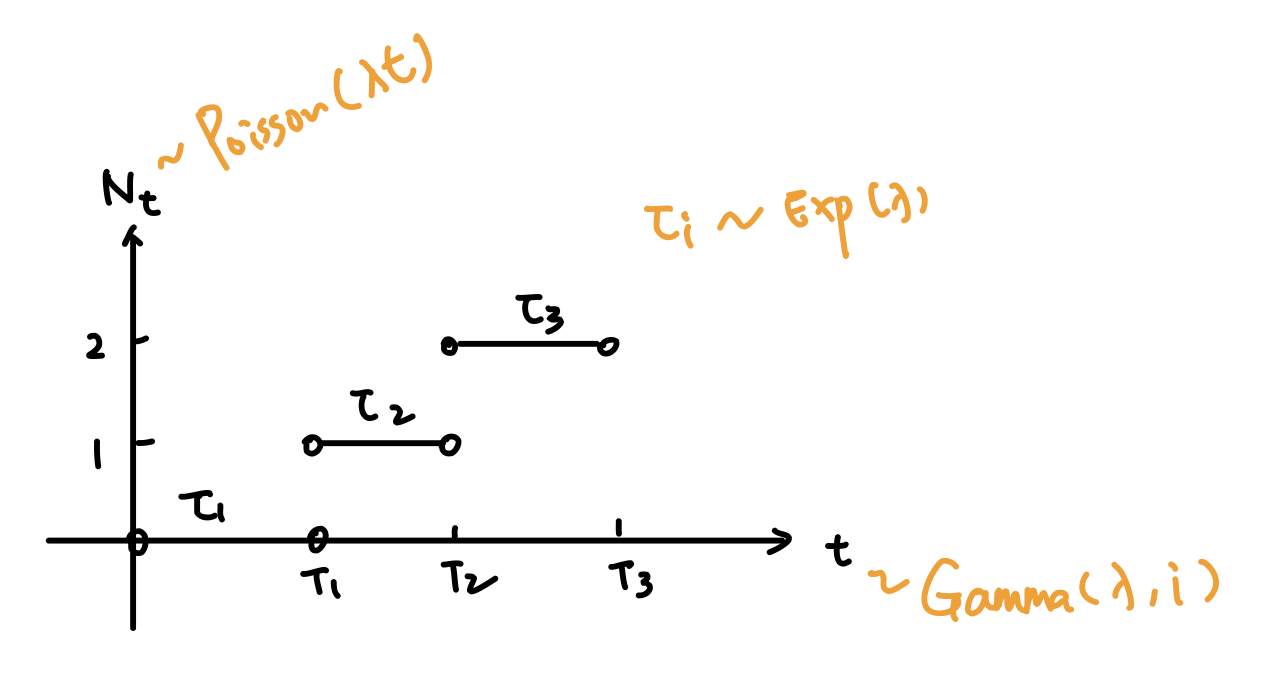 N_t ~ Poisson(λt)
τ_i ~ Exp(λ)
2
τ_3
1
τ_2
τ_1
T_1
T_2
T_3
t ~ Gamma(λ, i)